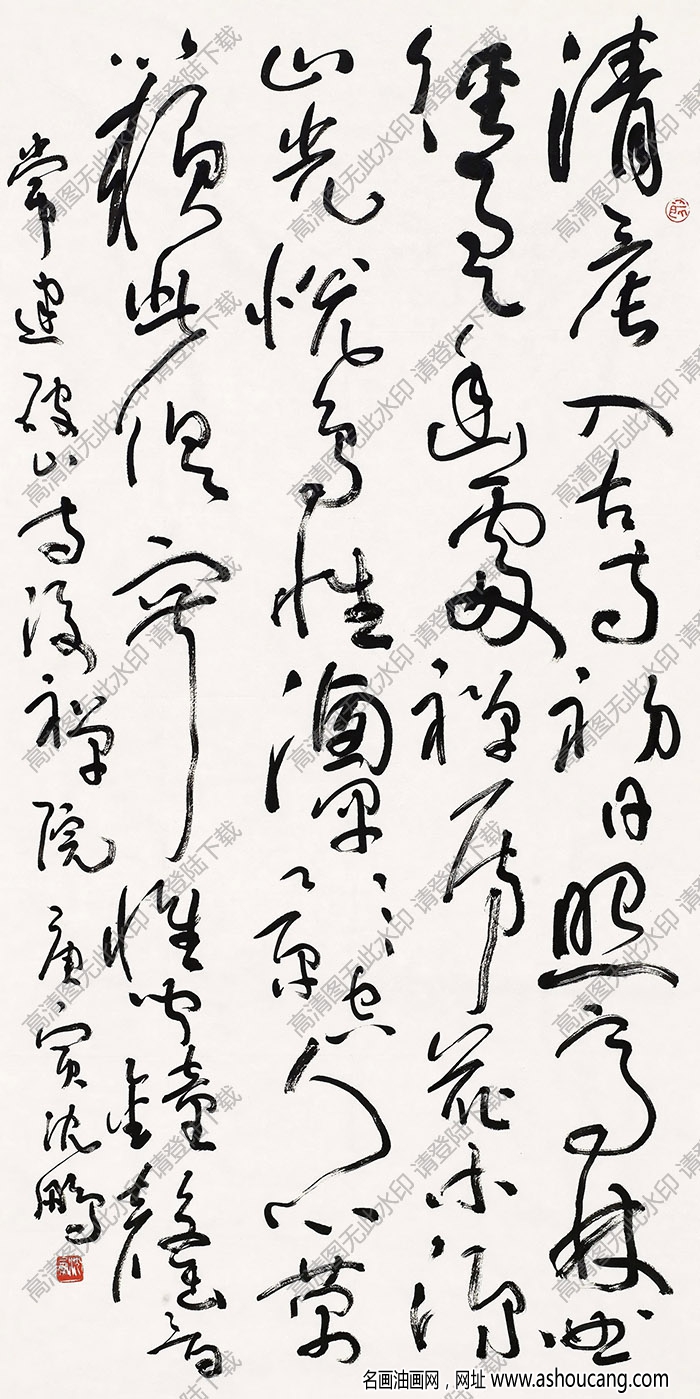 清晨入古寺初日照高林曲
徑通幽處禪房花木深
山光悦鳥性潭影空人心萬
籟此俱寂惟聞鐘磬音
常建破山寺後禪院庚寅沈鵬
高清图无此水印 请登陆下载
名画油画网，网址 www.ashoucang.com